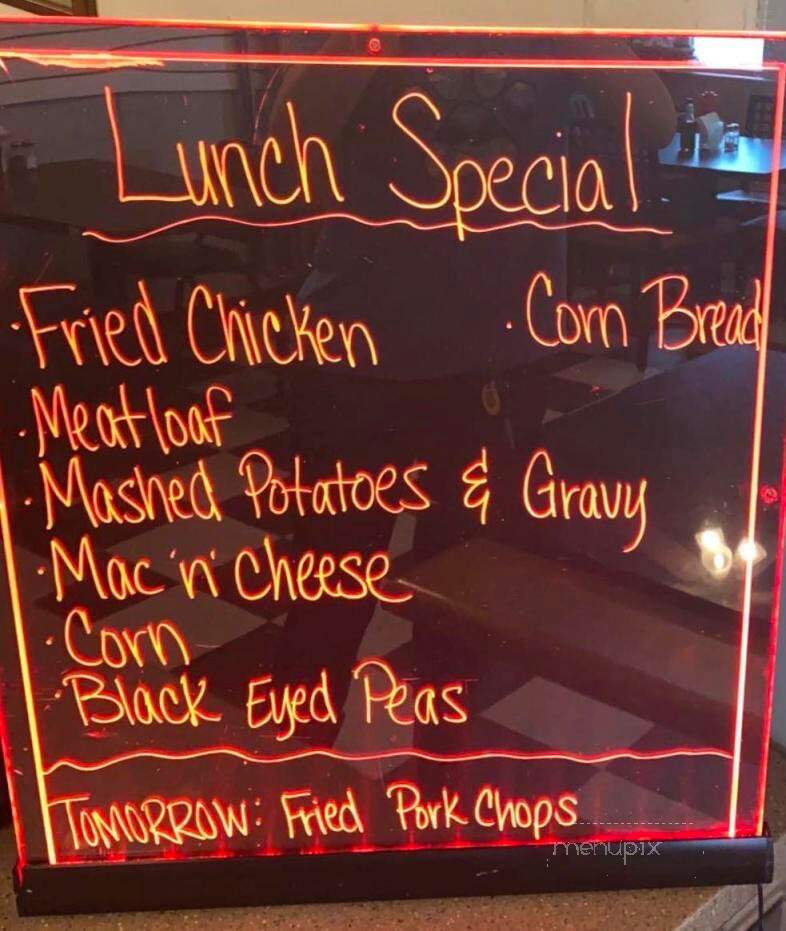 Lunch Special
·Fried Chicken
·Corn Bread
·Meatloaf
·Mashed Potatoes & Gravy
·Mac 'n' Cheese
·Corn
·Black Eyed Peas
TOMORROW: Fried Pork Chops
menupix